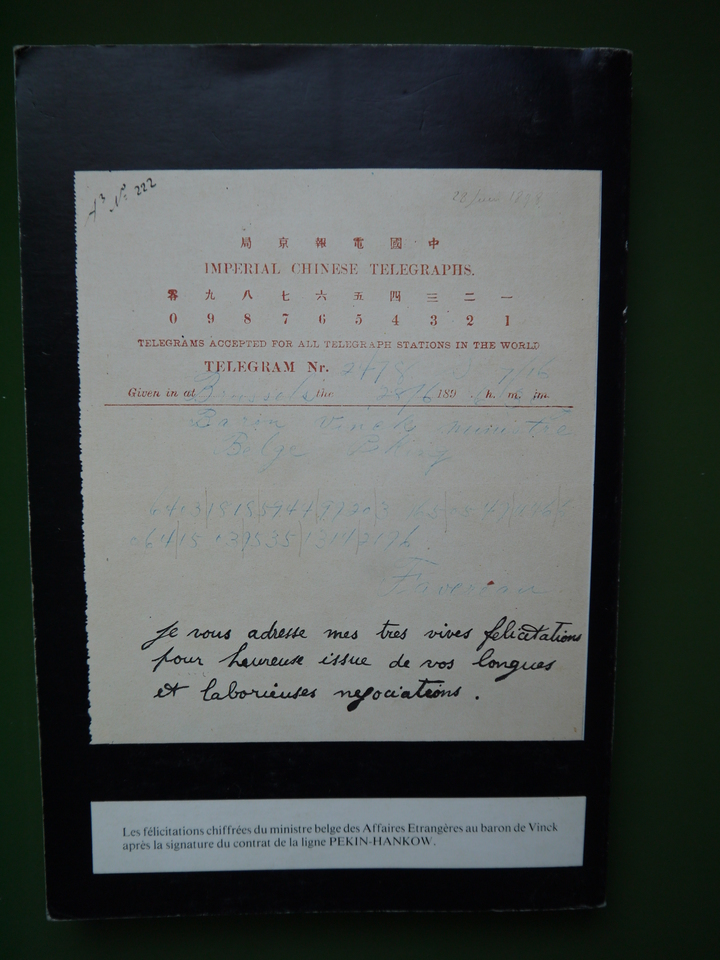 Nº 222
局 京 報 電 國 中
IMPERIAL CHINESE TELEGRAPHS.
零 九 八 七 六 五 四 三 二 一
0 9 8 7 6 5 4 3 2 1
TELEGRAMS ACCEPTED FOR ALL TELEGRAPH STATIONS IN THE WORLD
TELEGRAM Nr.
Given in at Brussels the 28/6 189 h. m. m.
Baron Vinck ministre
Belge Peking
Favereau
je vous adresse mes tres vives felicitations
pour heureuse issue de vos longues
et laborieuses negociations.
Les félicitations chiffrées du ministre belge des Affaires Etrangères au baron de Vinck
après la signature du contrat de la ligne PEKIN-HANKOW.